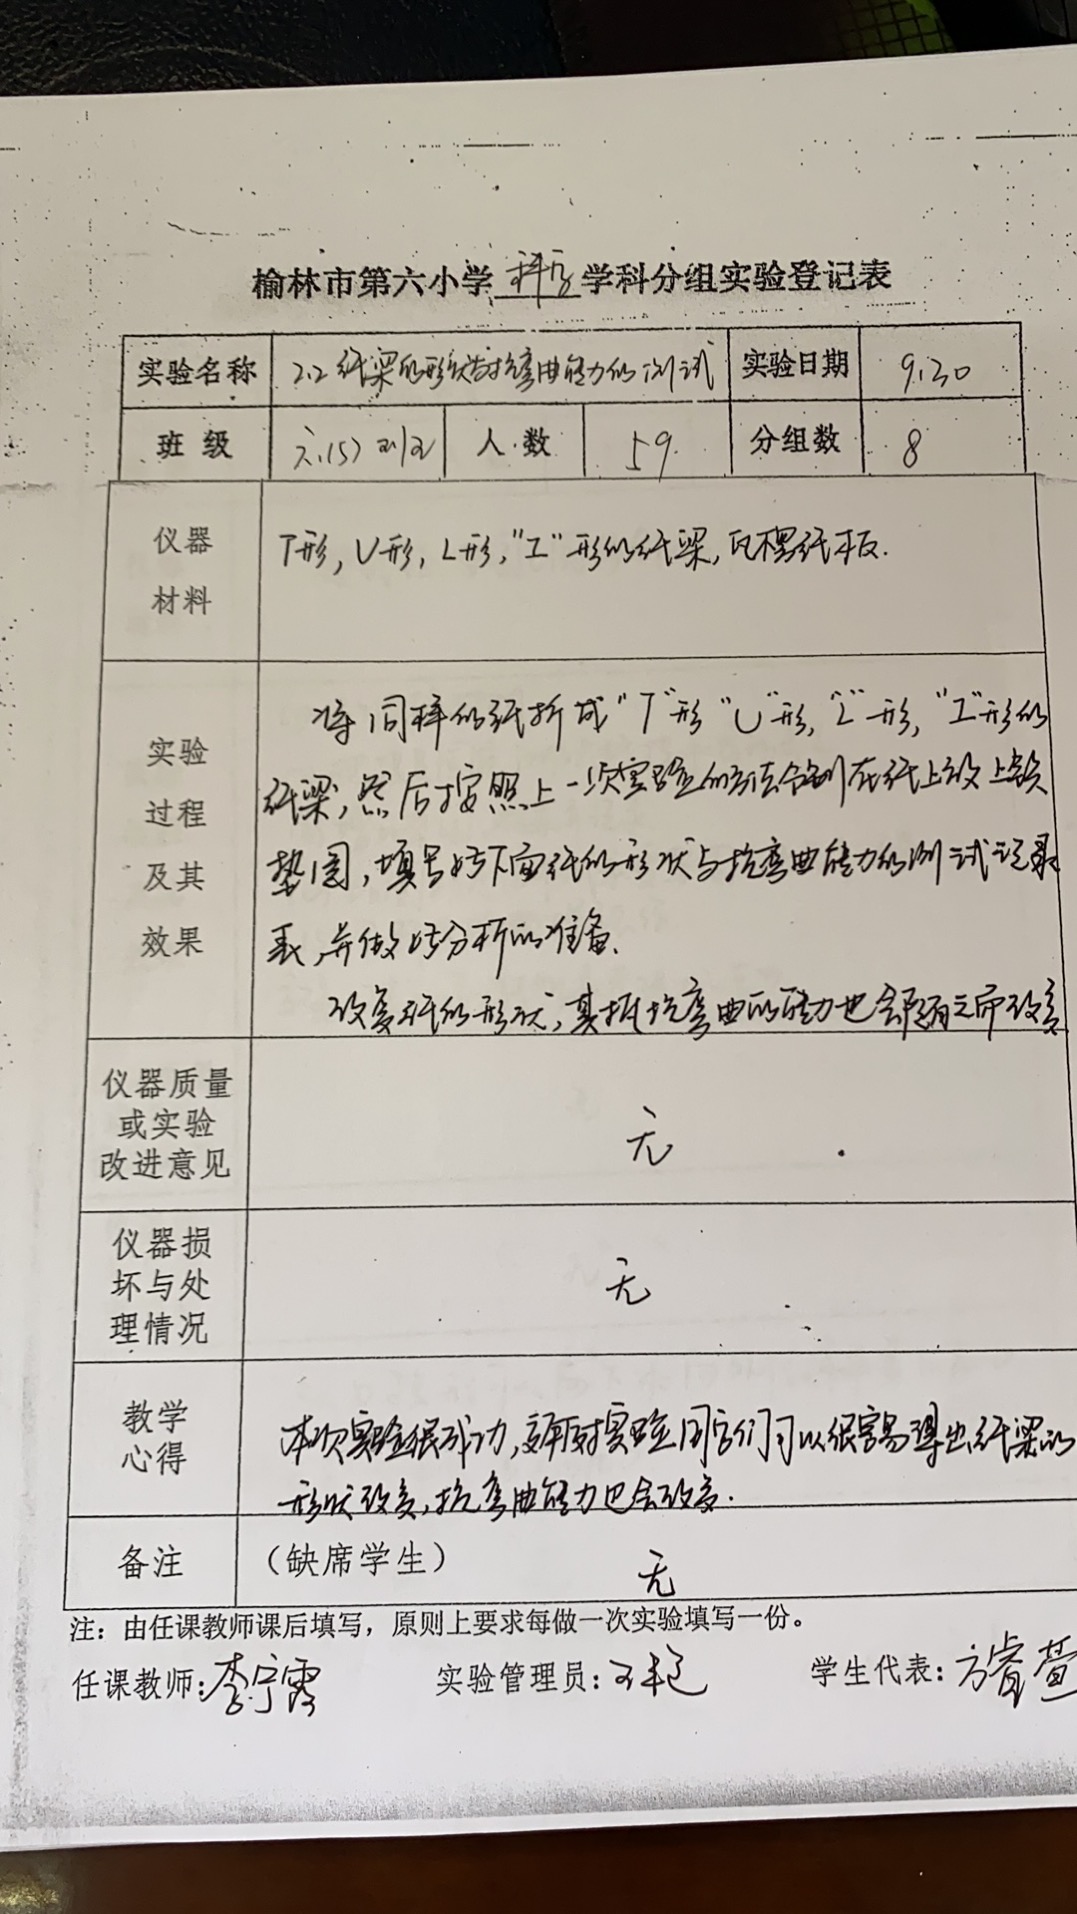 榆林市第六小学 科学 学科分组实验登记表
实验名称 2.2纸梁的形状与抗弯曲能力的测试 实验日期 9.30
班级 六(5)班 人数 59 分组数 8
仪器
材料
T形,U形,L形,"工"形的纸梁,瓦楞纸板.
实验
过程
及其
效果
将同样的纸折成"T"形"U"形,"L"形,"工"形的
纸梁,然后按照上一次实验的方法分别在纸上放上铁
垫圈,填写好下面纸的形状与抗弯曲能力的测试记录
表,并做好分析的准备.
改变纸的形状,其抵抗弯曲的能力也会随之而改变
仪器质量
或实验
改进意见
无
仪器损
坏与处
理情况
无
教学
心得
本次实验很成功,实验同学们可以很容易得出纸梁的
形状改变,抗弯曲能力也会改变.
备注 (缺席学生) 无
注:由任课教师课后填写,原则上要求每做一次实验填写一份。
任课教师:李宁霞 实验管理员: 学生代表:方睿萱